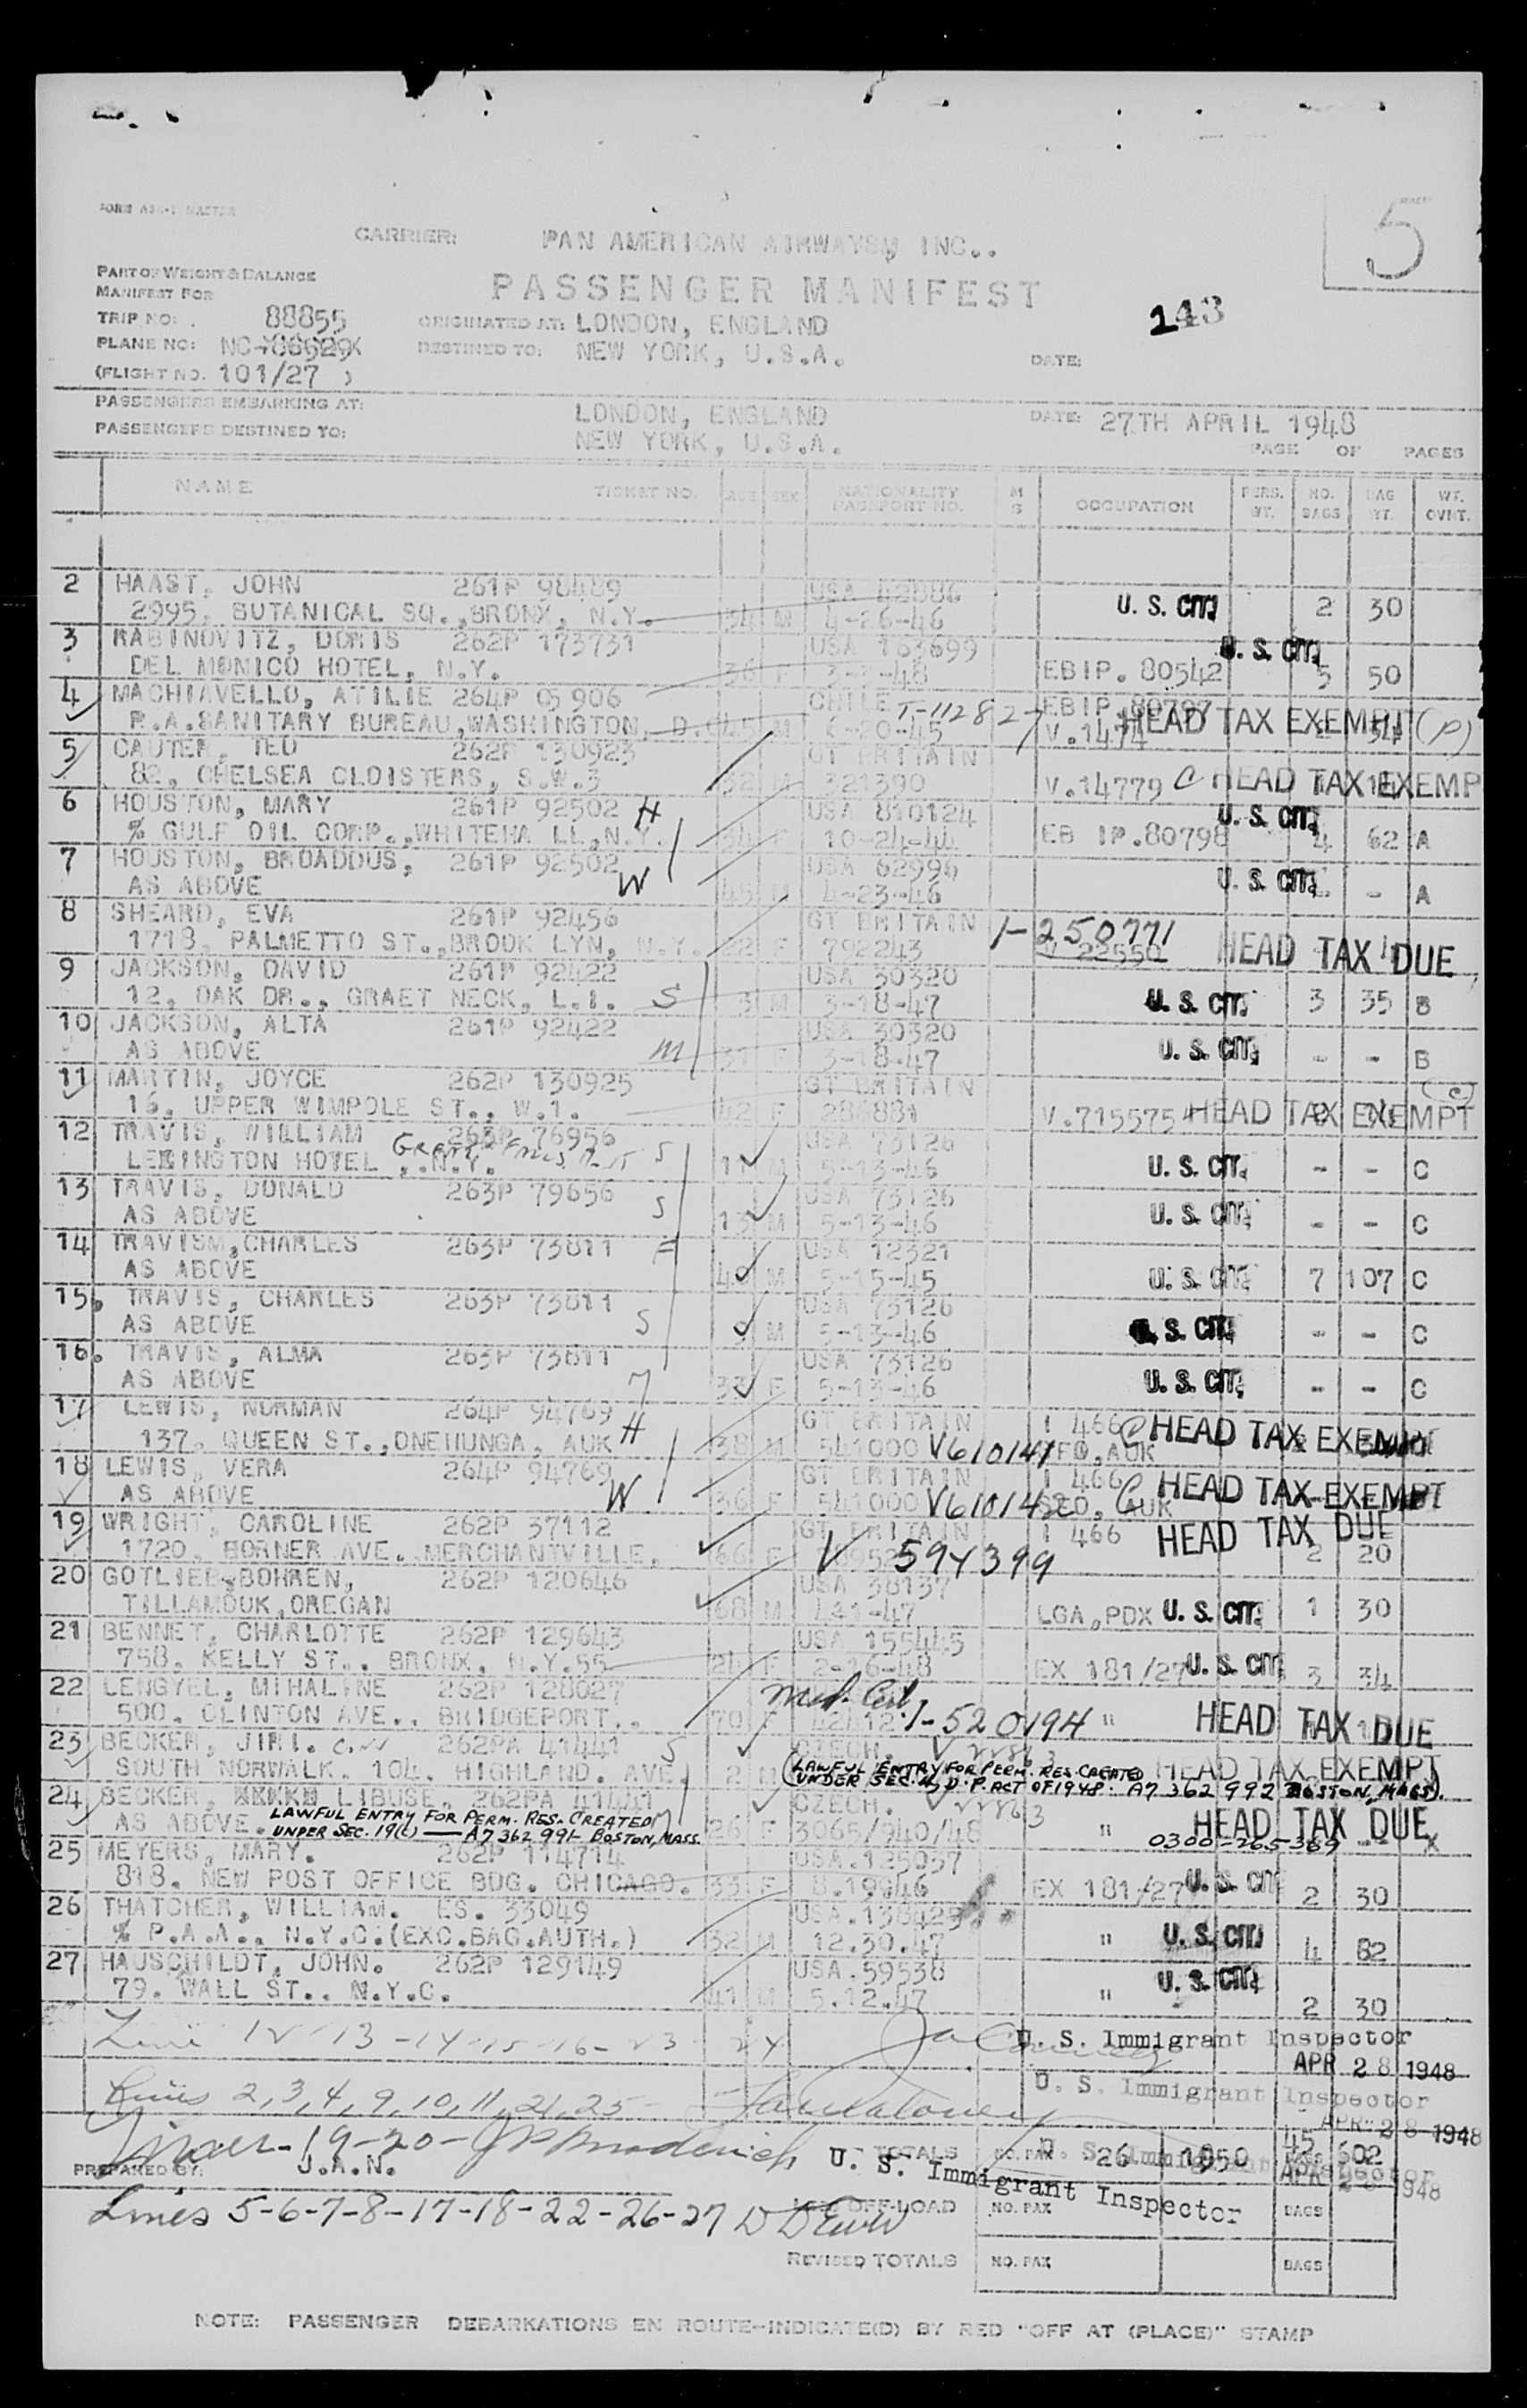 FORM MASTER
5
CARRIER: PAN AMERICAN AIRWAYS, INC..
PART OF WEIGHT & BALANCE
MANIFEST FOR
PASSENGER MANIFEST
143
TRIP NO: 88855 ORIGINATED AT: LONDON, ENGLAND
PLANE NO: NC-86529 DESTINED TO: NEW YORK, U.S.A. DATE:
(FLIGHT NO. 101/27 )
PASSENGERS EMBARKING AT: LONDON, ENGLAND DATE: 27TH APRIL 1948
PASSENGERS DESTINED TO: NEW YORK, U.S.A. PAGE OF PAGES
NAME TICKET NO. AGE SEX NATIONALITY PASSPORT NO. M S OCCUPATION PERS. WT. NO. BAGS BAG WT. WT. OVNT.
2 HAAST, JOHN 261P 98489 USA 42886
2995, BUTANICAL SQ., BRONX, N.Y. 34 M 4-26-46 U. S. CIT. 2 30
3 RABINOVITZ, DORIS 262P 173731 USA 163699 U. S. CIT.
DEL MONICO HOTEL, N.Y. 36 F 3-3-48 EBIP. 80542 5 50
4 MACHIAVELLO, ATILIE 264P 906 CHILE T-112827 EBIP.80797
P.A.SANITARY BUREAU,WASHINGTON, D.C 45 M 6-20-45 V.1474 HEAD TAX EXEMPT (P)
5 CAUTER, TED 262P 130923 GT BRITAIN
82, CHELSEA CLOISTERS, S.W.3 32 M 321390 V.14779 C HEAD TAX EXEMP
6 HOUSTON, MARY 261P 92502 H USA 810124 U. S. CIT.
% GULF OIL CORP.,WHITEHA LL,N.Y. 34 F 10-24-44 EB IP.80798 4 62 A
7 HOUSTON, BROADDUS, 261P 92502 W USA 62996 U. S. CIT.
AS ABOVE 45 M 4-23-46 - A
8 SHEARD, EVA 261P 92456 GT BRITAIN 1-250771
1718, PALMETTO ST.,BROOK LYN, N.Y. 22 F 792243 V 22550 HEAD TAX DUE
9 JACKSON, DAVID 261P 92422 USA 30320
12, OAK DR., GRAET NECK, L.I. S 3 M 3-18-47 U. S. CIT. 3 35 B
10 JACKSON, ALTA 261P 92422 USA 30320
AS ABOVE M 31 F 3-18-47 U. S. CIT. - - B
11 MARTIN, JOYCE 262P 130925 GT BRITAIN (C)
16, UPPER WIMPOLE ST., W.1. 42 F 281881 V.715575 HEAD TAX EXEMPT
12 TRAVIS, WILLIAM 263P 76956 S USA 73126
LEXINGTON HOTEL ,.N.Y. 11 M 5-13-46 U. S. CIT. - - C
13 TRAVIS, DONALD 263P 79656 S USA 73126
AS ABOVE 13 M 5-13-46 U. S. CIT. - - C
14 TRAVISM,CHARLES 263P 73811 F USA 12321
AS ABOVE 40 M 5-15-45 U. S. CIT. 7 107 C
15. TRAVIS, CHARLES 263P 73811 USA 73126
AS ABOVE S 9 M 5-13-46 U. S. CIT. - - C
16. TRAVIS, ALMA 263P 73811 USA 73126
AS ABOVE M 33 F 5-13-46 U. S. CIT. - - C
17 LEWIS, NORMAN 264P 94769 H GT BRITAIN I 466 C HEAD TAX EXEMPT
137, QUEEN ST.,ONEHUNGA, AUK 38 M 541000 V610141 SFO,AUK
18 LEWIS, VERA 264P 94769 GT BRITAIN I 466 C HEAD TAX EXEMPT
AS ABOVE W 36 F 541000 V610142 SFO, AUK
19 WRIGHT, CAROLINE 262P 37112 GT BRITAIN I 466 HEAD TAX DUE
1720, BORNER AVE. MERCHANTVILLE, 66 F V 594399 2 20
20 GOTLIEB-BOHREN, 262P 120646 USA 38137
TILLAMOUK,OREGAN 68 M 441-47 LGA,PDX U. S. CIT. 1 30
21 BENNET, CHARLOTTE 262P 129643 USA 155445
758, KELLY ST., BRONX, N.Y.55 24 F 2-16-48 EX 181/27 U. S. CIT. 3 34
22 LENGYEL, MIHALINE 262P 128027 Med. Cert
500, CLINTON AVE., BRIDGEPORT.. 70 F 42412 1-520194 " HEAD TAX DUE
23 BECKER, JIRI. 262PA 41441 S CZECH. V
SOUTH NORWALK, 104, HIGHLAND. AVE. 2 M HEAD TAX EXEMPT
(LAWFUL ENTRY FOR PERM. RES. CREATED
UNDER SEC. 4, D.P. ACT OF 1948: A7 362 992 BOSTON, MASS).
24 BECKER, XXXXX LIBUSE, 262PA 41441 M CZECH.
AS ABOVE. 26 F 3065/940/48 " HEAD TAX DUE
LAWFUL ENTRY FOR PERM. RES. CREATED
UNDER SEC. 19(c) — A7 362 991- BOSTON, MASS. 0300-265-369 X
25 MEYERS, MARY. 262P 114714 USA.125037
818, NEW POST OFFICE BDG. CHICAGO. 33 F 8.19946 EX 181/27 U. S. CIT. 2 30
26 THATCHER, WILLIAM. ES. 33049 USA.138425
% P.A.A., N.Y.C.(EXC.BAG.AUTH.) 32 M 12.30.47 " U. S. CIT. 4 82
27 HAUSCHILDT, JOHN. 262P 129149 USA.59538
79. WALL ST., N.Y.C. 41 M 5.12.47 " U. S. CIT. 2 30
Line 12-13-14-15-16-23-24 U. S. Immigrant Inspector
APR 28 1948
Lines 2,3,4,9,10,11,21,25- U. S. Immigrant Inspector
APR 28 1948
Lines - 19-20-
PREPARED BY: J.A.N. TOTALS NO. PAX 26 1950 45 602
U. S. Immigrant Inspector
APR 28 1948
Lines 5-6-7-8-17-18-22-26-27
OFF-LOAD NO. PAX BAGS
REVISED TOTALS NO. PAX BAGS
NOTE: PASSENGER DEBARKATIONS EN ROUTE—INDICATE(D) BY RED "OFF AT (PLACE)" STAMP